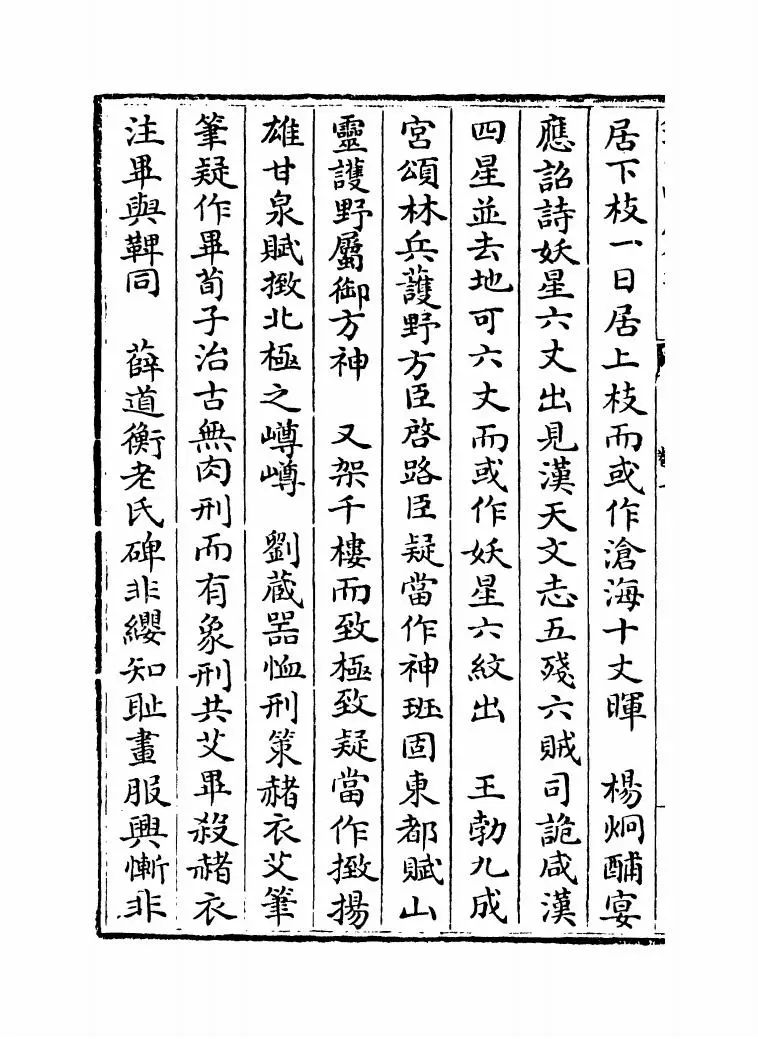 居下枝一日居上枝而或作滄海十丈暉　楊炯酺宴
應詔詩妖星六丈出見漢天文志五殘六賊司詭咸漢
四星並去地可六丈而或作妖星六紋出　王勃九成
宮頌林兵䕶野方臣啓路臣疑當作神班固東都賦山
靈䕶野屬御方神　又架千樓而致極致疑當作㨖揚
雄甘泉賦㨖北極之嶟嶟　劉蕆器恤刑策赭衣艾筆
筆疑作畢荀子治古無肉刑而有象刑共艾畢殺赭衣
注畢與鞸同　薛道衡老氏碑非纓知耻畫服興慚非